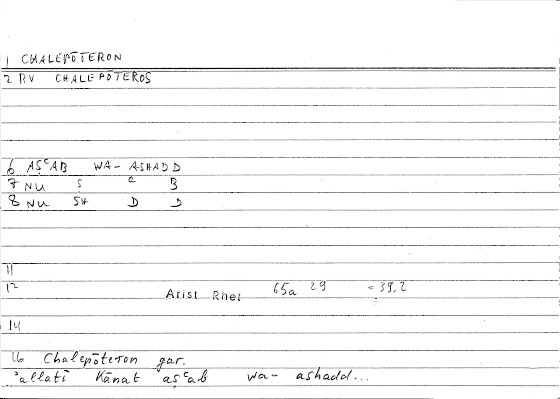 1 CHALEPŌTERON
2 RV CHALEPŌTEROS
6 AṢᶜAB WA- ASHADD
7 NU Ṣ ᶜ B
8 NU SH D D
11
12 Arist Rhet 65a 29 = 39,2
14
16 Chalepōteron gar.
ʾallatī Kānat aṣᶜab wa- ashadd...